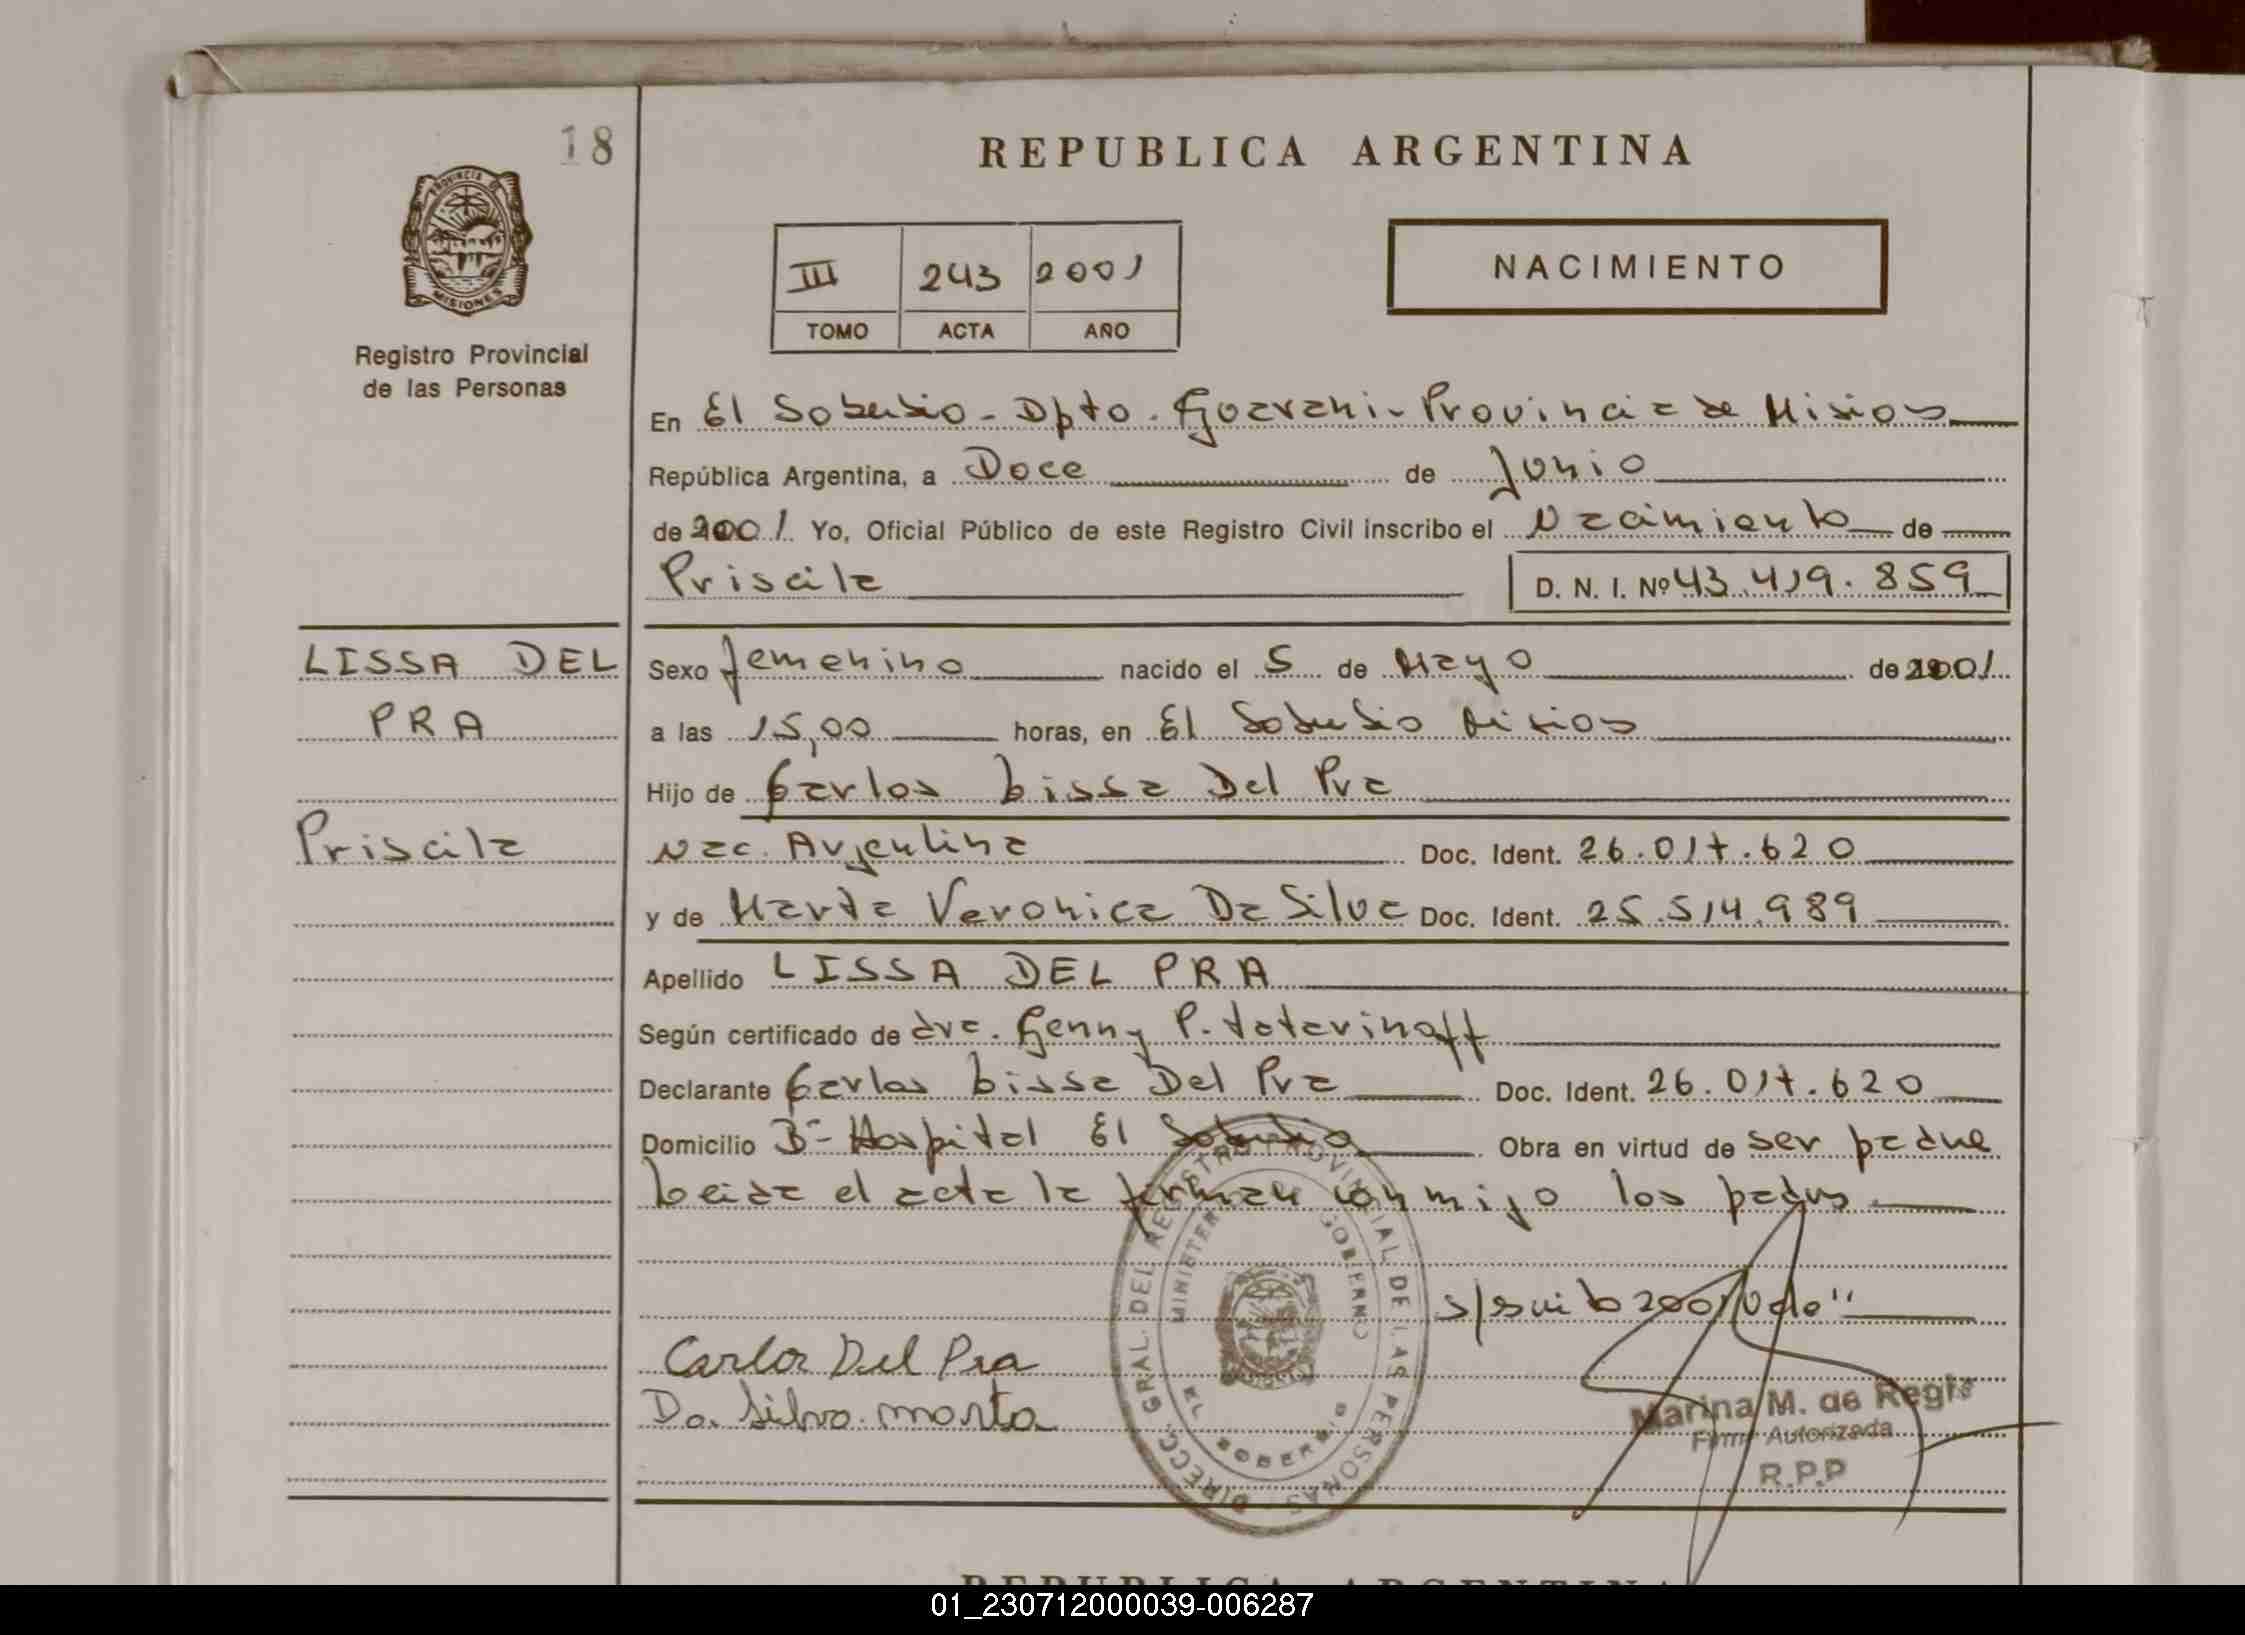 18
REPUBLICA ARGENTINA
PROVINCIA DE
MISIONES
III 243 2001
TOMO ACTA AÑO
NACIMIENTO
Registro Provincial
de las Personas
En El Soberbio - Dpto. Guarani - Provincia de Misiones
República Argentina, a Doce de Junio
de 2001 Yo, Oficial Público de este Registro Civil inscribo el Nacimiento de
Priscila D. N. I. Nº 43.419.859
LISSA DEL
PRA
Priscila
Sexo femenino nacido el 5 de Mayo de 2001
a las 15,00 horas, en El Soberbio Misiones
Hijo de Carlos Lissa Del Pra
Nac. Argentina Doc. Ident. 26.017.620
y de Marta Veronica Da Silva Doc. Ident. 25.514.989
Apellido LISSA DEL PRA
Según certificado de dra. Genny P. Tatarinoff
Declarante Carlos Lissa Del Pra Doc. Ident. 26.017.620
Domicilio Bº Hospital El Soberbio Obra en virtud de ser padre
Leida el acta la firman conmigo los padres
s/escrito 2001 Vale"
Carlos Del Pra
Da Silva marta
DIRECC. GRAL. DEL REGISTRO PROVINCIAL DE LAS PERSONAS
MINISTERIO DE GOBIERNO
EL SOBERBIO
Marina M. de Regis
Firma Autorizada
R.P.P
REPUBLICA ARGENTINA
01_230712000039-006287